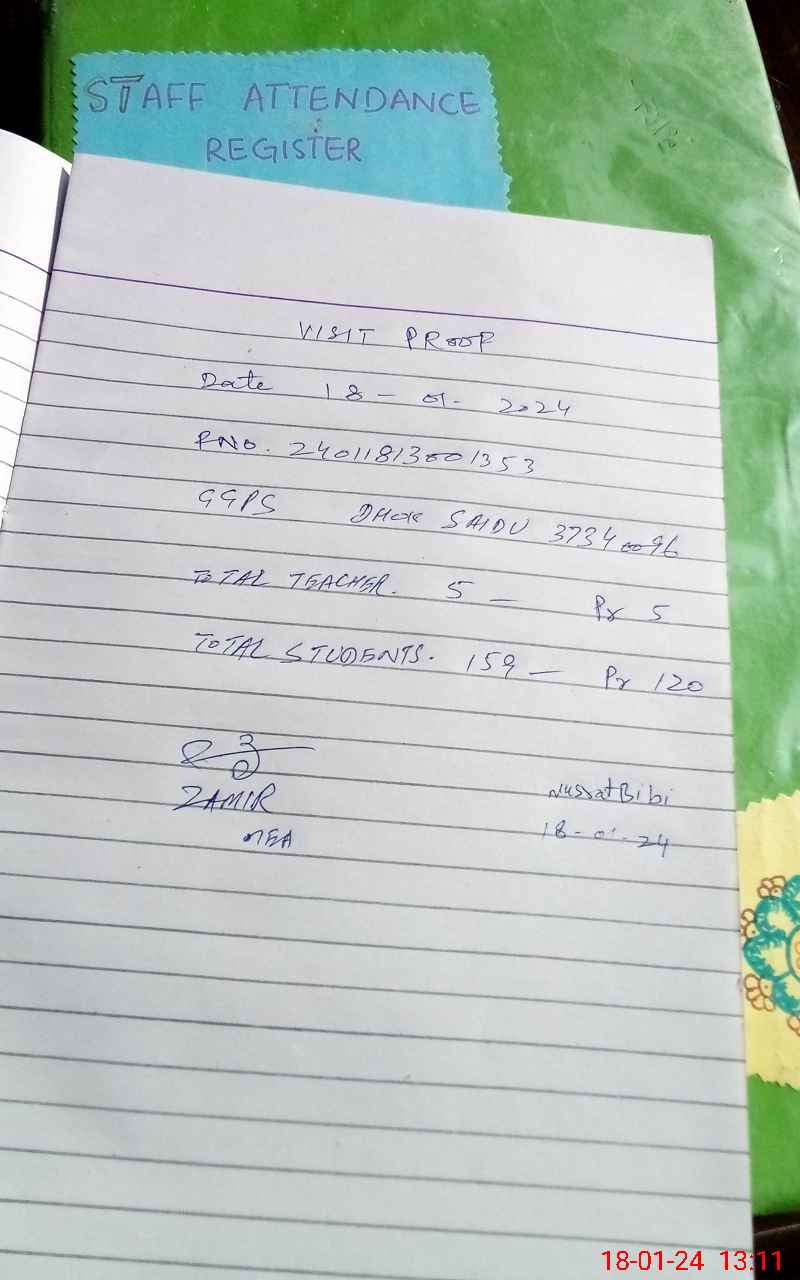 STAFF ATTENDANCE
REGISTER
VISIT PROOF
Date 18 - 01 - 2024
RNO. 24011813001353
GGPS DHOK SAIDU 37340096
TOTAL TEACHER. 5 - Pr 5
TOTAL STUDENTS. 159 - Pr 120
ZAMIR
MEA
Nussat Bibi
18-01-24
18-01-24 13:11